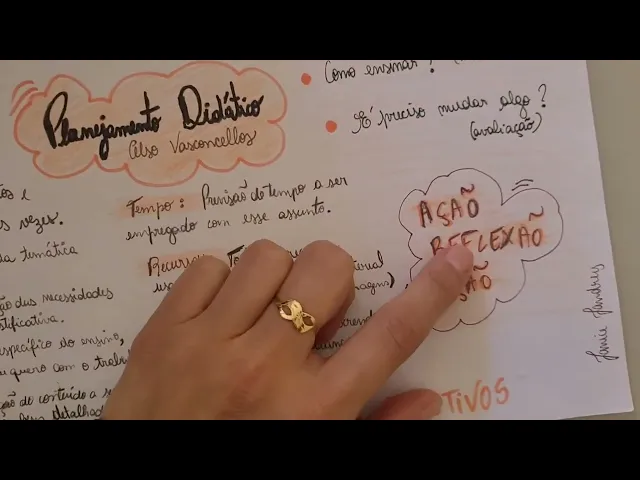 Planejamento Didático
Celso Vasconcellos
Como ensinar?
É preciso mudar algo?
(avaliação)
s vezes.
da temática
ção das necessidades
stificativa.
específico do ensino,
quero com o trabal
ção de conteúdo a se
detalhad
Tempo: Previsão de tempo a ser
empregado com esse assunto.
Recurso
AÇÃO
REFLEXÃO
ÇÃO
TIVOS